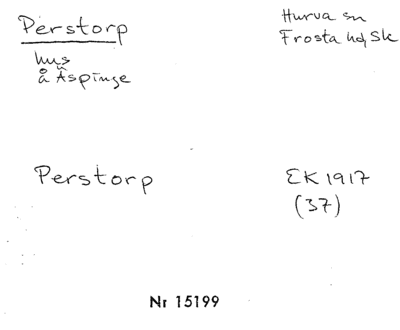 Perstorp
hus
å Äspinge
Hurva sn
Frosta hd, Sk
Perstorp
EK 1917
(37)
Nr 15199